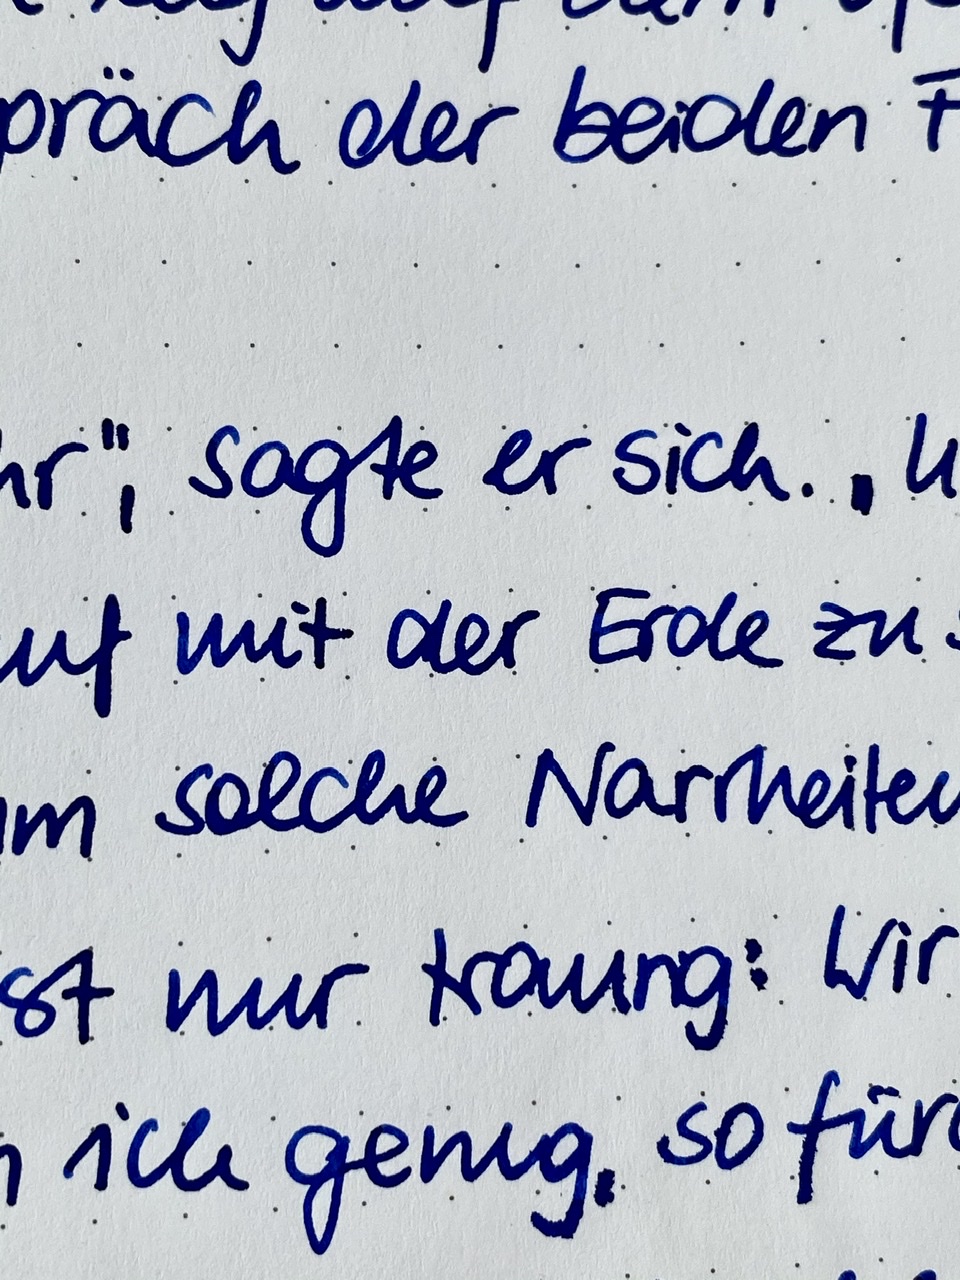 auf dem
präch der beiden F
hr", sagte er sich. „U
uf mit der Erde zu s
um solche Narrheiten
st nur traurig: Wir
n ich genug, so für